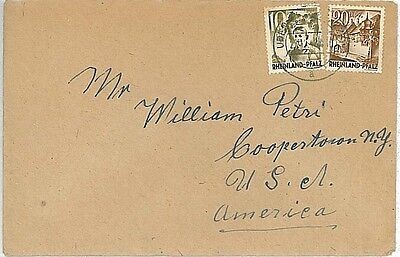 20
RHEINLAND-PFALZ RHEINLAND-PFALZ
a
Mr William Petri
Coopertown N.Y.
U.S.A.
America